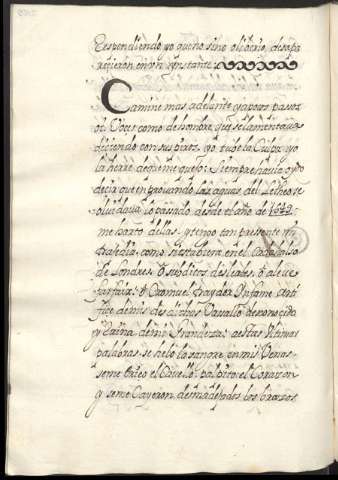 Respondiendo yo que no sino olibrio, desapa
recieron en un ynstante.
Camine mas adelante y apocos pasos
oi Voces como de hombre que se lamentaua
diciendo con suspiros, yo tube la Culpa, yo
la herre de que me quejo: siempre hauia oydo
decir que en prouando las aguas del Letheo se
oluidaua lo pasado, desde el año de 1649.
me harto dellas, y tengo tan presente mi
trajedia, como si estubiera en el Cadahalso
de Londres. O subditos desleales, o aleue
farfaix: O Cromuel traydor Ynfame arti
fice de mis desdichas Cauallo desconocido
y Ruina de mis Grandezas: a estas Ultimas
palabras, se helo la sangre en mis Venas
se me eriço el Cauello palpito el Corazon
y se me Cayeron desmadejados los brazos